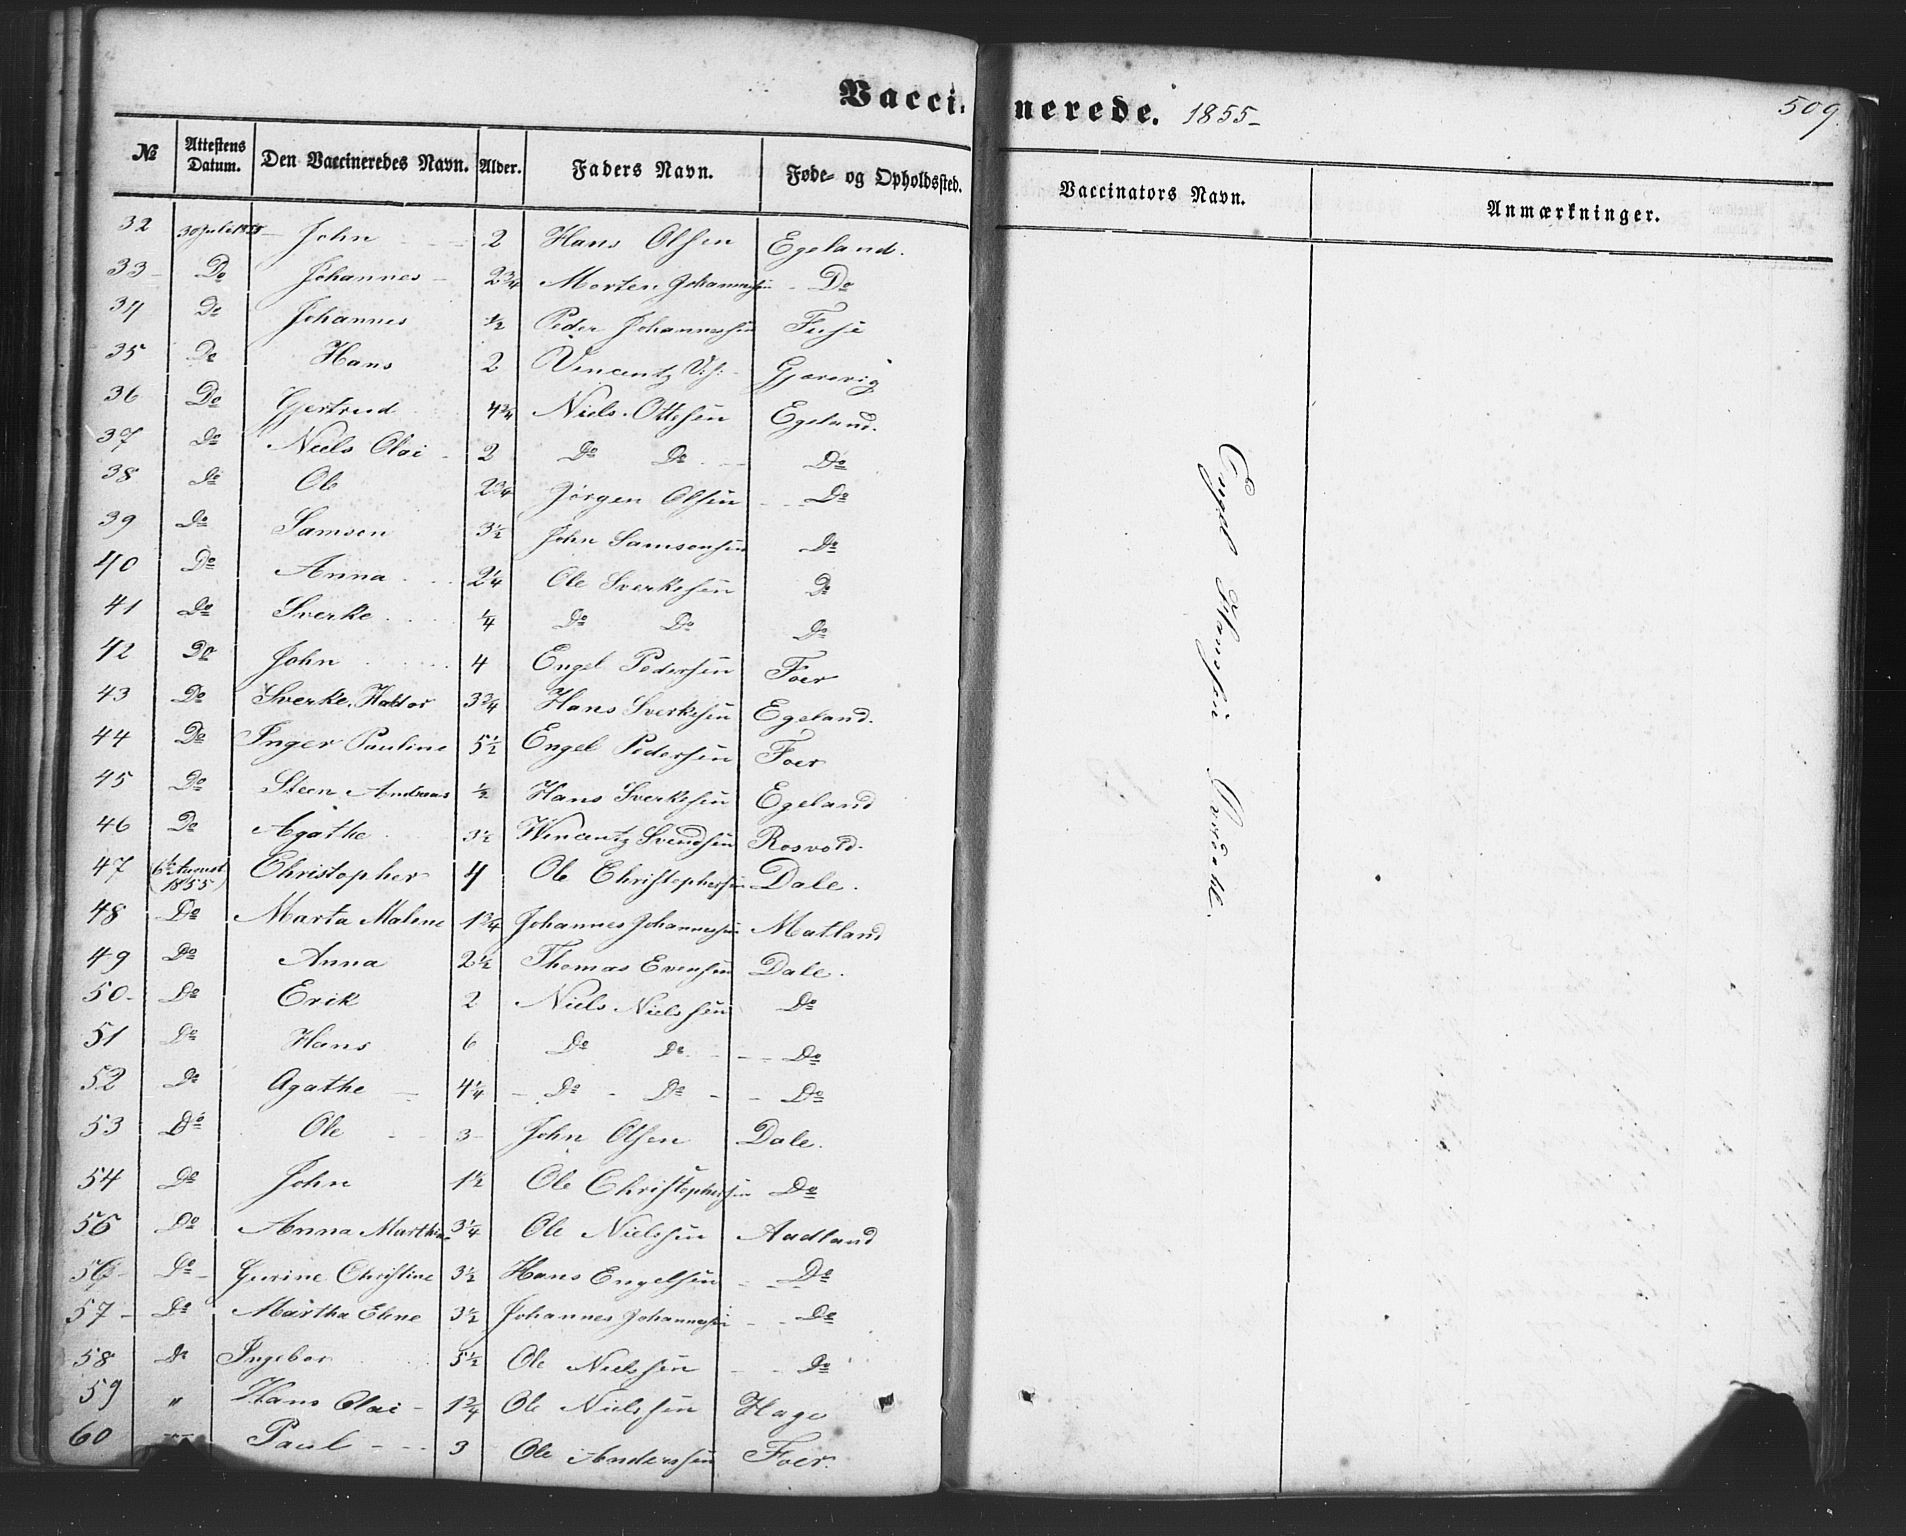 Vaccinerede. 1855-
509.
№ Attestens Datum. Den Vaccineredes Navn. Alder. Faders Navn. Føde- og Opholdssted. Vaccinators Navn. Anmærkninger.
32 30 Juli 1855 John 2 Hans Olsen Egeland.
33 Do Johannes 2 3/4 Morten Johannessen Do
34 Do Johannes 1/2 Peder Johannessen Fuse
35 Do Hans 2 Vincentz Gjærevig
36 Do Gjertrud 4 3/4 Niels Ottesen Egeland.
37 Do Niels Olai 2 Do Do Do
38 Do Ole 2 3/4 Jørgen Olsen Do
39 Do Samson 3 1/2 John Samsonsen Do
40 Do Anna 2 1/4 Ole Sverkesen Do
41 Do Sverke 1/4 Do Do Do
42 Do John 4 Engel Pedersen Foer
43 Do Sverke Haldor 3 3/4 Hans Sverkesen Egeland.
44 Do Inger Pauline 5 1/2 Engel Pedersen Foer
45 Do Steen Andreas 1/2 Hans Sverkesen Egeland
46 Do Agathe 3 1/2 Wincentz Svendsen Rosvold.
47 6te August (1855) Christopher 4 Ole Christophersen Dale.
48 Do Marta Malene 1 3/4 Johannes Johannessen Matland
49 Do Anna 2 1/2 Thomas Evensen Dale.
50 Do Erik 2 Niels Nielssen Do
51 Do Hans 6 Do Do Do
52 Do Agathe 4 1/4 Do Do Do
53 Do Ole 3 John Olsen Dale.
54 Do John 1 1/2 Ole Christophersen Do
55 Do Anna Marthine 3 1/4 Ole Nielssen Aadland
56 Do Gurine Christine 3 1/2 Hans Engelsen Do
57 Do Martha Elene 3 1/2 Johannes Johannessen Do
58 Do Ingebor 5 1/2 Ole Nielssen Do
59 " Hans Olai 1 3/4 Ole Nielssen Hage
60 Paul 3 Ole Anderssen Foer.
Engel Hanssen